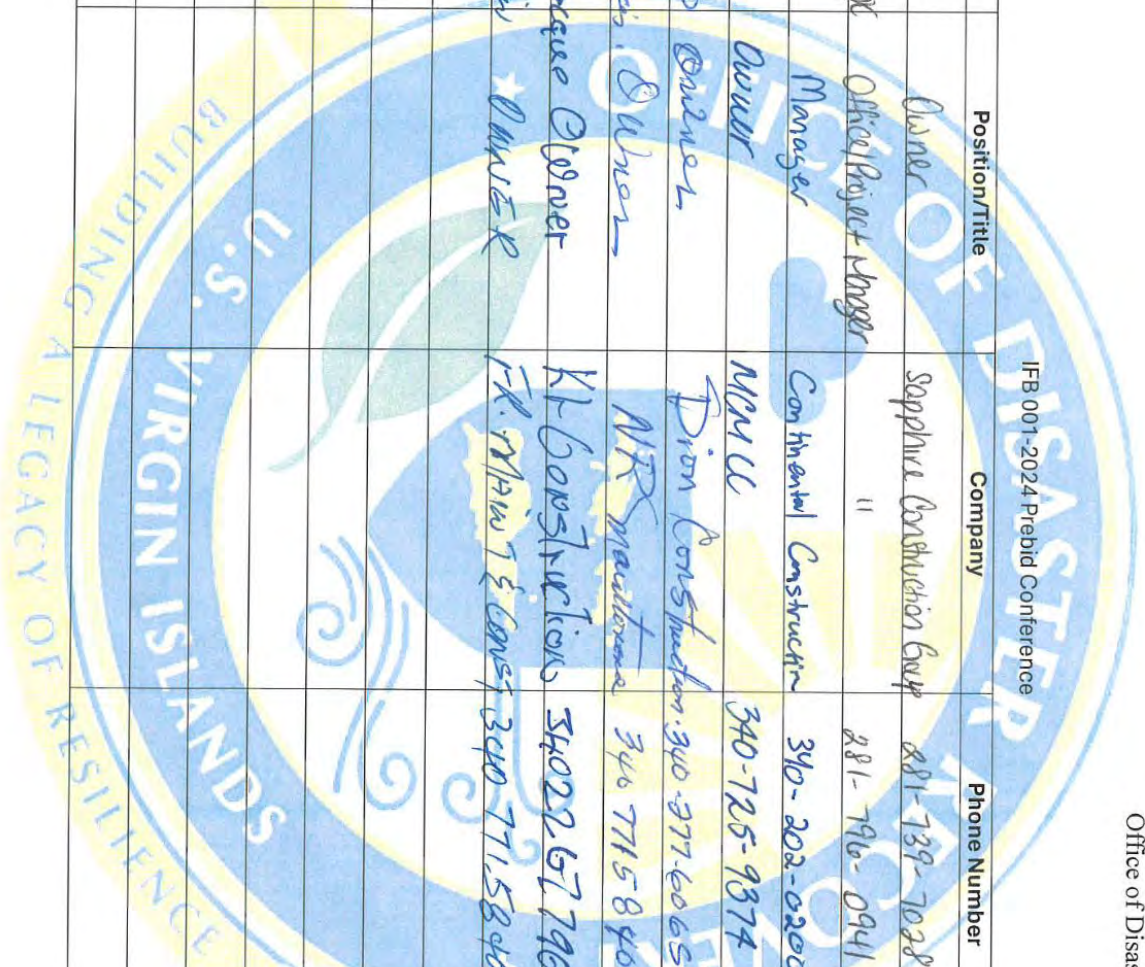 Office of Disas
IFB 001-2024 Prebid Conference
Position/Title Company Phone Number
Owner Sapphire Construction Group 281-739-7028
Office/Project Manager " 281-796-0941
Manager Continental Construction 340-202-0200
Owner MCM LLC 340-725-9374
Owner Dion Construction 340-277-6065
Owner NR 340 7715840
Owner Kt Construction 3402267796
★ OWNER F.R. MAINT & Const, 340 771.5840
OFFICE OF DISASTER RECO
U.S. VIRGIN ISLANDS
BUILDING A LEGACY OF RESILIENCE